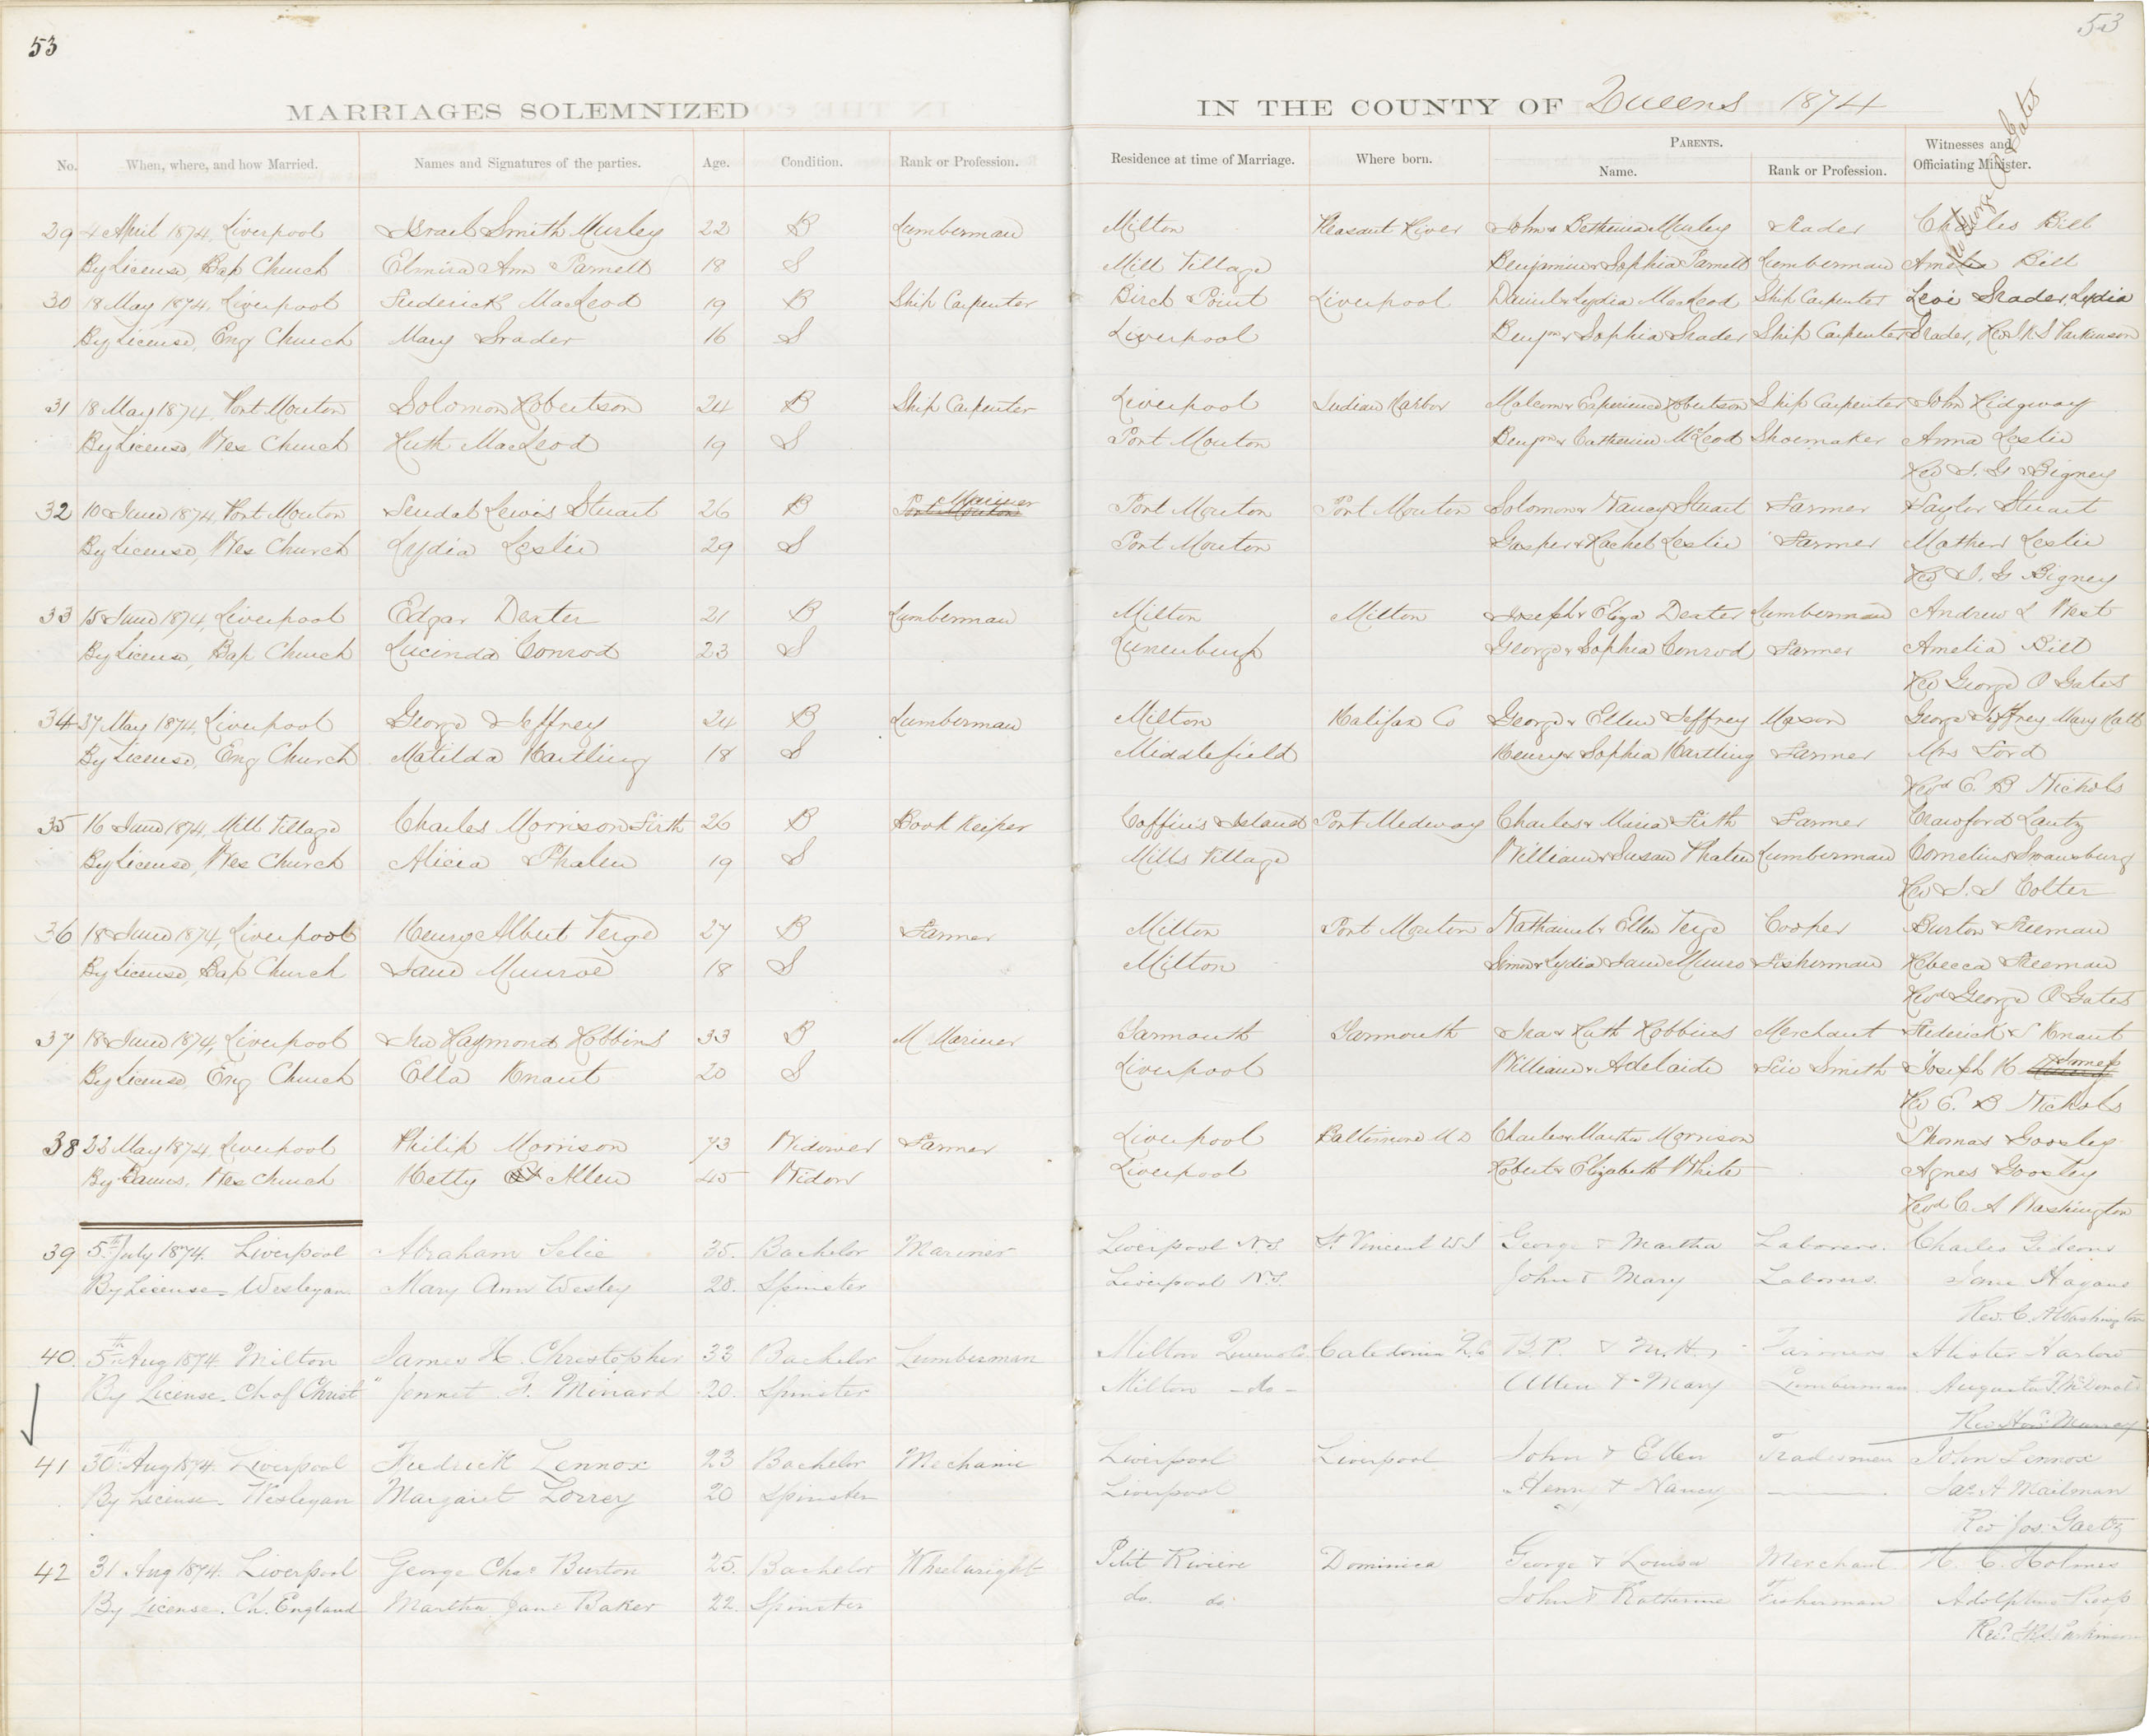 53
53
MARRIAGES SOLEMNIZED
IN THE COUNTY OF Queens 1874
No. When, where, and how Married. Names and Signatures of the parties. Age. Condition. Rank or Profession. Residence at time of Marriage. Where born. PARENTS. Name. Rank or Profession. Witnesses and Officiating Minister.
Rev George O Gates
29 4 April 1874, Liverpool Israel Smith Murley 22 B Lumberman Milton Pleasant River John & Bethenia Murley Trader Charles Bill
By License, Bap Church Elmira Ann Parnell 18 S Mill Village Benjamin & Sophia Parnell Lumberman Amelia Bill
30 18 May 1874, Liverpool Frederick MacLeod 19 B Ship Carpenter Birch Point Liverpool Daniel & Lydia MacLeod Ship Carpenter Levi Srader, Lydia
By License, Eng Church Mary Srader 16 S Liverpool Benjn & Sophia Srader Ship Carpenter Srader, Rev Parkinson
31 18 May 1874, Port Mouton Solomon Robertson 24 B Ship Carpenter Liverpool Indian Harbor Malcom & Experience Robertson Ship Carpenter John Ridgway
By License, Wes Church Ruth MacLeod 19 S Port Mouton Benjn & Catherine McLeod Shoemaker Anna Leslie
Rev I. G Bigney
32 10 June 1874, Port Mouton Lendal Lewis Stuart 26 B Mariner Port Mouton Port Mouton Port Mouton Solomon & Nancy Stuart Farmer Taylor Stuart
By License, Wes Church Lydia Leslie 29 S Port Mouton Gasper & Rachel Leslie Farmer Mathew Leslie
Rev I. G Bigney
33 15 June 1874, Liverpool Edgar Dexter 21 B Lumberman Milton Milton Joseph & Eliza Dexter Lumberman Andrew L West
By License, Bap Church Lucinda Conrod 23 S Lunenburgh George & Sophia Conrod Farmer Amelia Bill
Rev George O Gates
34 37 May 1874, Liverpool George Jeffrey 24 B Lumberman Milton Halifax Co George & Ellen Jeffrey Mason George Jeffrey Mary Hall
By License, Eng Church Matilda Hartling 18 S Middlefield Henry & Sophia Hartling Farmer Mrs Ford
Revd E. B Nichols
35 16 June 1874, Mill Village Charles Morrison Firth 26 B Book Keeper Coffin's Island Port Medway Charles & Maria Firth Farmer Crawford Lantz
By License, Wes Church Alicia Phalen 19 S Mills Village William & Susan Phalen Lumberman Cornelius Swansburg
Rev J. S Colter
36 18 June 1874, Liverpool Henry Albert Teige 27 B Farmer Milton Port Mouton Nathaniel & Ellen Teige Cooper Burton Freeman
By License, Bap Church Jane Munroe 18 S Milton Simon & Lydia Jane Munro Fisherman Rebecca Freeman
Revd George O Gates
37 18 June 1874, Liverpool Ira Raymond Robbins 33 B M Mariner Yarmouth Yarmouth Ira & Ruth Robbins Merchant Frederick S Knaut
By License, Eng Church Ella Knaut 20 S Liverpool William & Adelaide Tin Smith Joseph H
Rev E. B Nichols
38 22 May 1874, Liverpool Philip Morrison 73 Widower Farmer Liverpool Baltimore M D Charles & Martha Morrison Thomas Goosley
By Banns, Wes Church Hetty Allen 45 Widow Liverpool Robert & Elizabeth White Agnes Goosley
Revd C. A Washington
39 5th July 1874. Liverpool Abraham Selie 35. Bachelor Mariner Liverpool N.S. St Vincent W.I George & Martha Laborers. Charles Gideons
By License - Wesleyan Mary Ann Wesley 28. Spinster Liverpool N.S. John & Mary Laborers. Jane Hagans
Rev. C. A Washington
40. 5th Aug 1874. Milton James H. Christopher 33 Bachelor Lumberman Milton Queens Co. Caledonia Q.C B.P. & M.H. Farmers Harlow
By License. Ch of Christ Jennet F. Minard 20. Spinster Milton - do - Allen & Mary Lumberman Augusta McDonald
Rev Murray
41 30th Aug 1874. Liverpool Fredrick Lennox 23 Bachelor Mechanic Liverpool Liverpool John & Ellen Tradesmen John Lennox
By License - Wesleyan Margaret Torrey 20 Spinster Liverpool Henry & Nancy Jas. A Mailman
Rev Jos. Gaetz
42 31 Aug 1874. Liverpool George Chas Burton 25. Bachelor Wheelwright Petit Riviere Dominica George & Louisa Merchant H. C. Holmes
By License. Ch. England Martha Jane Baker 22. Spinster do. do. John & Katherine Fisherman
Revd Parkinson